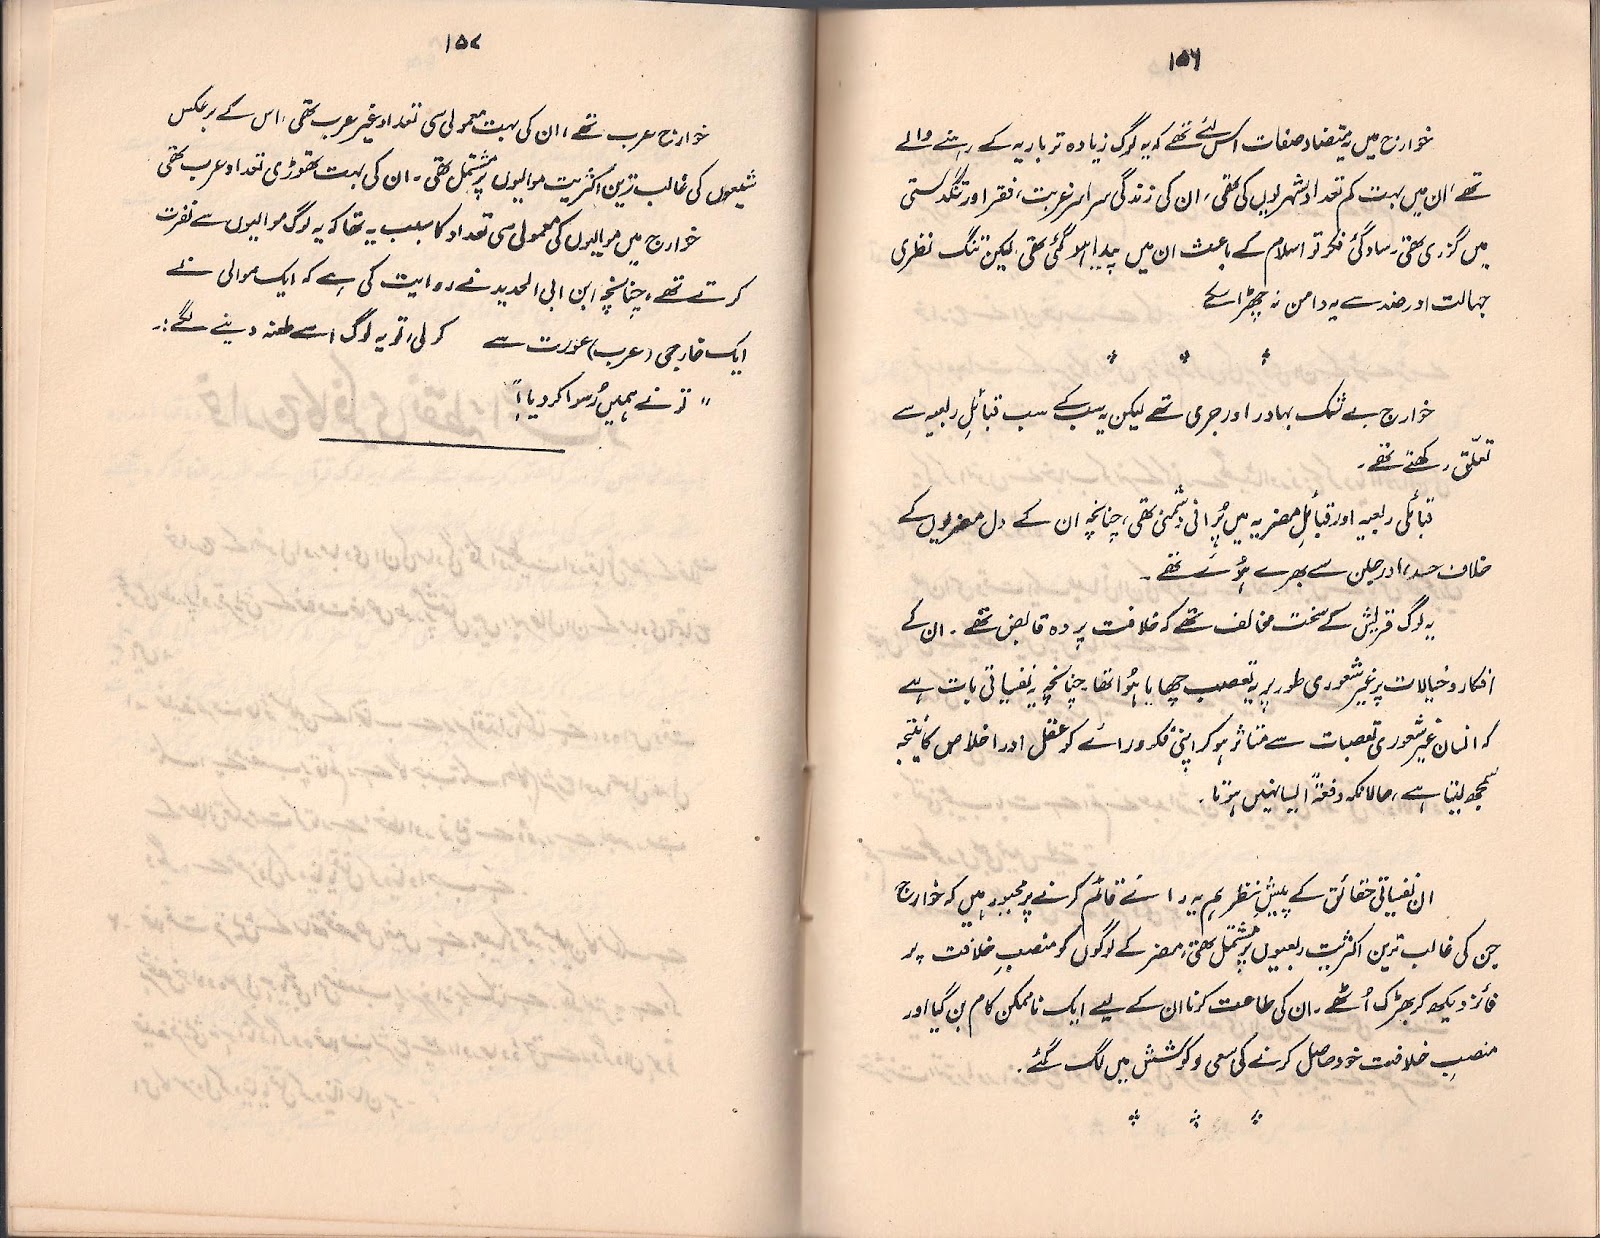 ۱۵۶
خوارج میں یہ متضاد صفات اس لئے تھے کہ یہ لوگ زیادہ تر بادیہ کے رہنے والے
تھے، ان میں بہت کم تعداد شہریوں کی تھی، ان کی زندگی سراسر غربت، فقر اور تنگدستی
میں گزری تھی، سادگیٔ فکر تو اسلام کے باعث ان میں پیدا ہو گئی تھی لیکن تنگ نظری
جہالت اور ضد سے یہ دامن نہ چھڑا سکے۔
خوارج بے شک بہادر اور جری تھے لیکن یہ سب کے سب قبائلِ ربعیہ سے
تعلّق رکھتے تھے۔
قبائلی ربعیہ اور قبائلِ مضریہ میں پُرانی دشمنی تھی، چنانچہ ان کے دل مضریوں کے
خلاف حسد، اور جلن سے بھرے ہُوئے تھے۔
یہ لوگ قریش کے سخت مخالف تھے کہ خلافت پر وہ قابض تھے۔ ان کے
افکار و خیالات پر غیر شعوری طور پر یہ تعصب چھایا ہُوا تھا۔ چنانچہ یہ نفسیاتی بات ہے
کہ انسان غیر شعوری تعصبات سے متاثر ہو کر اپنی فکر و رائے کو عقل اور اخلاص کا نتیجہ
سمجھ لیتا ہے، حالانکہ دفعۃً ایسا نہیں ہوتا۔
ان نفسیاتی حقائق کے پیشِ نظر ہم یہ رائے قائم کرنے پر مجبور ہیں کہ خوارج
جن کی غالب ترین اکثریت ربعیوں پر مشتمل تھی، مضر کے لوگوں کو منصبِ خلافت پر
فائز دیکھ کر بھڑک اُٹھے۔ ان کی طاعت کرنا ان کے لیے ایک ناممکن کام بن گیا اور
منصبِ خلافت خود حاصل کرنے کی سعی و کوشش میں لگ گئے۔
۱۵۷
خوارج عرب تھے، ان کی بہت معمولی سی تعداد غیر عرب تھی، اس کے برعکس
شیعوں کی غالب ترین اکثریت موالیوں پر مشتمل تھی۔ ان کی بہت تھوڑی تعداد عرب تھی
خوارج میں موالیوں کی معمولی سی تعداد کا سبب یہ تھا کہ یہ لوگ موالیوں سے نفرت
کرتے تھے، چنانچہ ابن ابی الحدید نے روایت کی ہے کہ ایک موالی نے
ایک خارجی (عرب) عورت سے کر لی، تو یہ لوگ اسے طعنہ دینے لگے:۔
" تو نے ہمیں رُسوا کر دیا!"